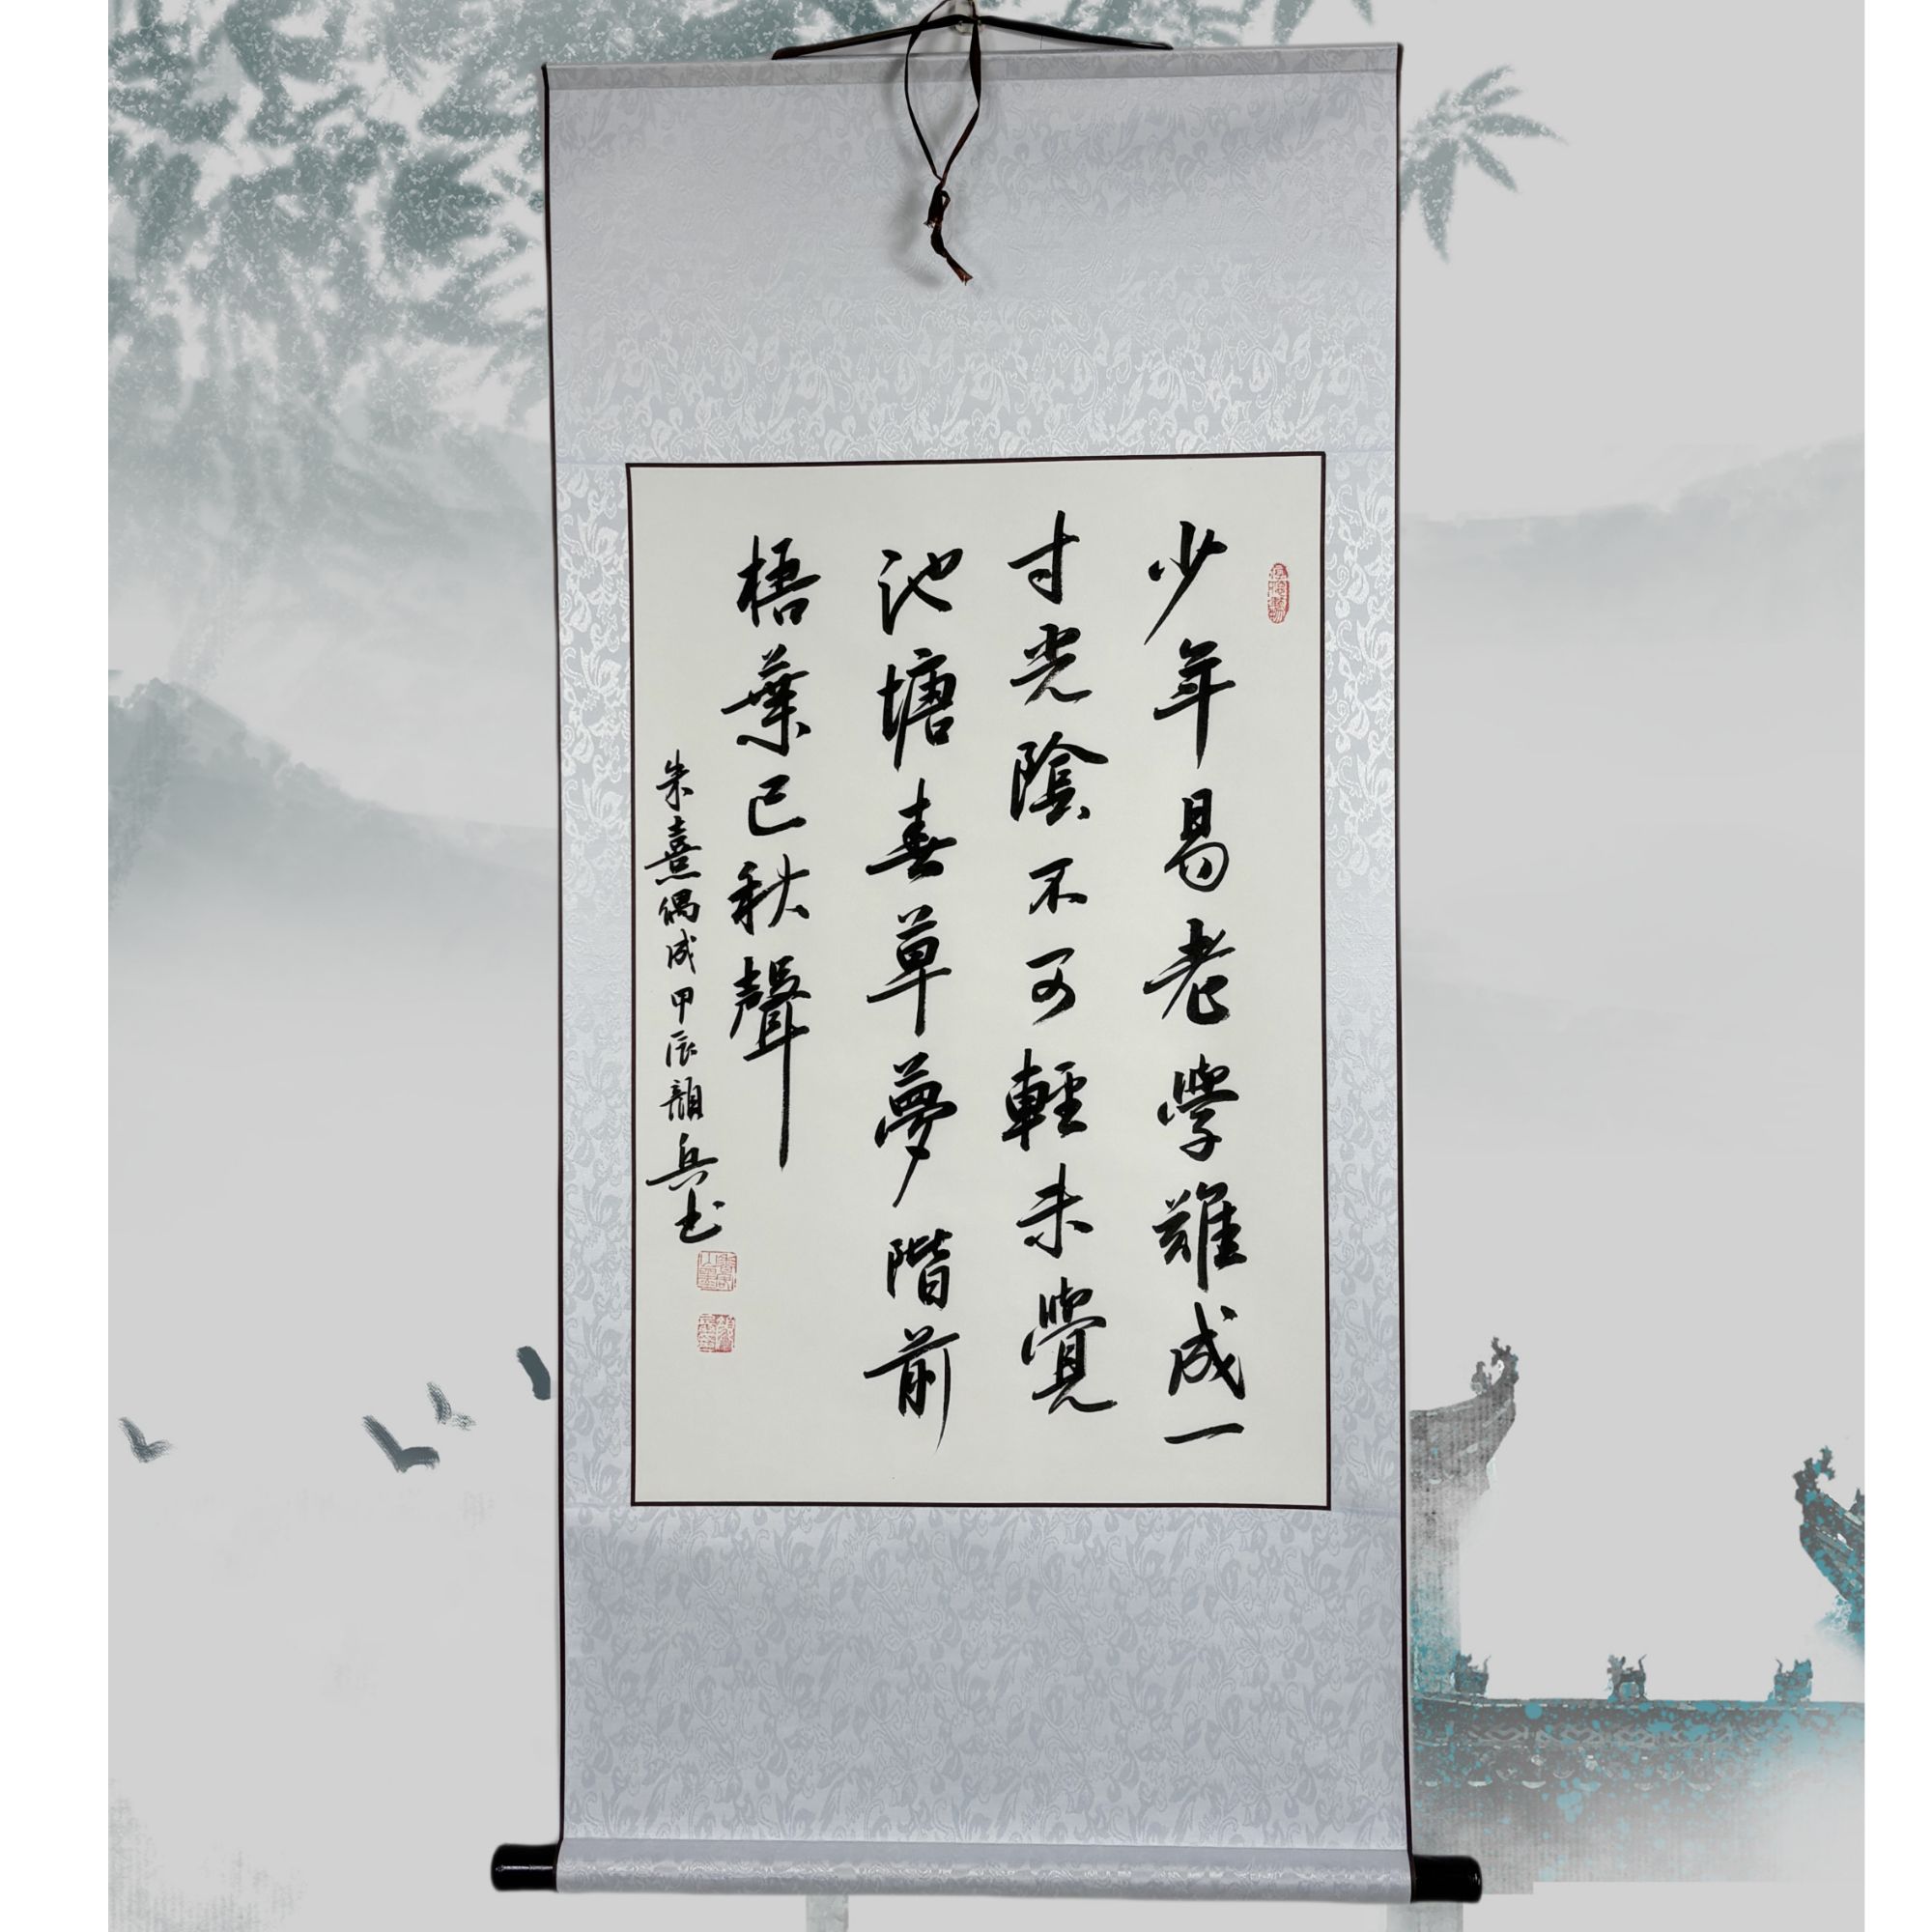 少年易老學難成一
寸光陰不可輕未覺
池塘春草夢階前
梧葉已秋聲
朱熹偶成甲辰韻兵书